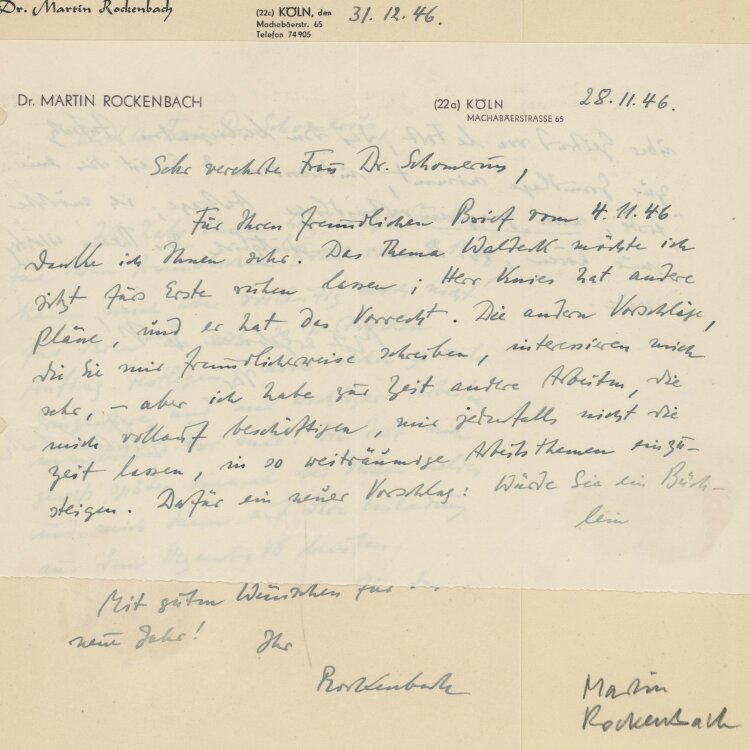 Dr. Martin Rockenbach
(22c) KÖLN, den 31.12.46.
Machabäerstr. 65
Telefon 74905
Dr. MARTIN ROCKENBACH
(22a) KÖLN 28.11.46.
MACHABÄERSTRASSE 65
Sehr verehrte Frau Dr. Schomerus,
Für Ihren freundlichen Brief vom 4.11.46
danke ich Ihnen sehr. Das Thema Waldeck möchte ich
jetzt fürs Erste ruhen lassen; Herr Knies hat andere
Pläne, und er hat das Vorrecht. Die andern Vorschläge,
die Sie mir freundlicherweise schreiben, interessieren mich
sehr, – aber ich habe zur Zeit andere Arbeiten, die
mich vollauf beschäftigen, mir jedenfalls nicht die
Zeit lassen, in so weiträumige Arbeitsthemen einzu-
steigen. Dafür ein neuer Vorschlag: Würde Sie ein Büch-
lein
Mit guten Wünschen für das
neue Jahr! Ihr
Rockenbach
Martin
Rockenbach